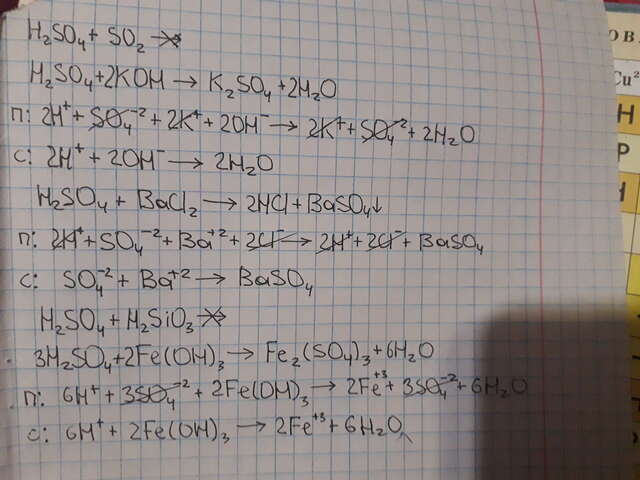 H₂SO₄ + SO₂ ↛
H₂SO₄ + 2KOH → K₂SO₄ + 2H₂O
П: 2H⁺ + SO₄⁻² + 2K⁺ + 2OH⁻ → 2K⁺ + SO₄⁻² + 2H₂O
С: 2H⁺ + 2OH⁻ → 2H₂O
H₂SO₄ + BaCl₂ → 2HCl + BaSO₄↓
П: 2H⁺ + SO₄⁻² + Ba⁺² + 2Cl⁻ → 2H⁺ + 2Cl⁻ + BaSO₄
С: SO₄⁻² + Ba⁺² → BaSO₄
H₂SO₄ + H₂SiO₃ ↛
3H₂SO₄ + 2Fe(OH)₃ → Fe₂(SO₄)₃ + 6H₂O
П: 6H⁺ + 3SO₄⁻² + 2Fe(OH)₃ → 2Fe⁺³ + 3SO₄⁻² + 6H₂O
С: 6H⁺ + 2Fe(OH)₃ → 2Fe⁺³ + 6H₂O
ОВ
Cu²
Н
Р
Н